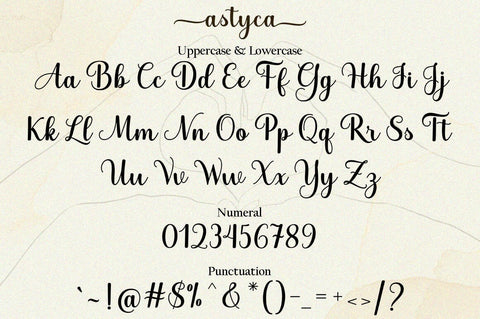 astyca
Uppercase & Lowercase
Aa Bb Cc Dd Ee Ff Gg Hh Ii Jj
Kk Ll Mm Nn Oo Pp Qq Rr Ss Tt
Uu Vv Ww Xx Yy Zz
Numeral
0123456789
Punctuation
`~!@#$%^&*()-_=+<>/?